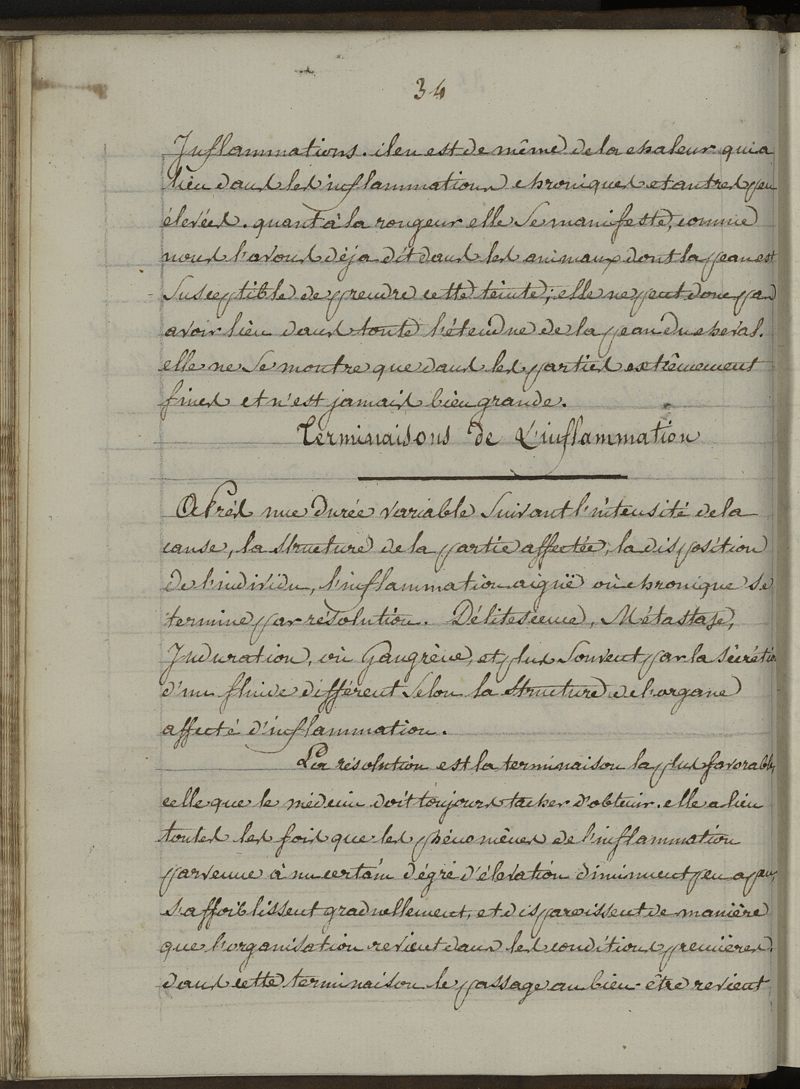 34
Inflammations. il en est de même de la chaleur qui a
lieu dans les inflammations chroniques et autres peu
élevées. quant à la rougeur elle se manifeste, comme
nous l'avons déja dit dans les animaux dont la peau est
susceptible de prendre cette teinte; elle ne peut donc pas
avoir lieu dans toute l'étendue de la peau du cheval.
elle ne se montre que dans les parties extrêmement
fines et n'est jamais bien grande.
Terminaisons de L'inflammation
Après une durée variable suivant l'intensité de la
cause, la structure de la partie affectée, la disposition
de l'individu, l'inflammation aiguë où chronique se
termine par résolution. Délitescence, Métastase,
Induration, où Gangrène, et plus souvent par la sécrétion
d'un fluide différent selon la structure de l'organe
affecté d'inflammation.
La résolution est la terminaison la plus favorable,
celle que le médecin doit toujours tacher d'obtenir. elle a lieu
toutes les fois que les phénomènes de l'inflammation
parvenue à un certain dégré d'élevation diminuent peu a peu,
s'affoiblissent graduellement, et disparoissent de manière
que l'organisation revient dans les conditions premières.
dans cette terminaison le passage au bien-être revient